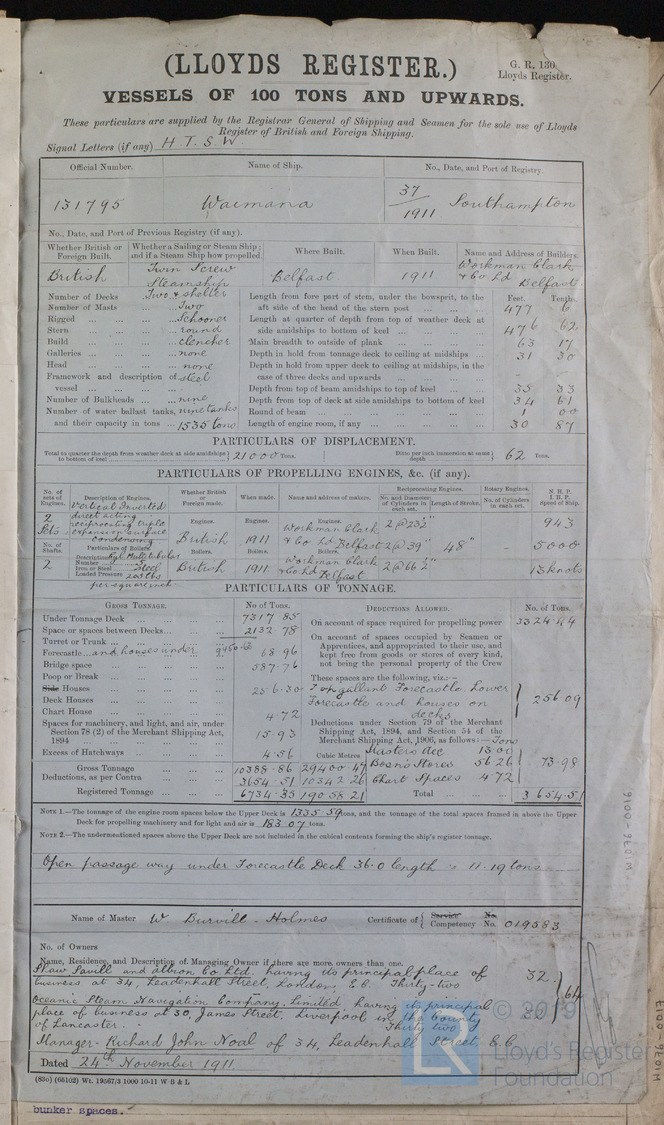 (LLOYDS REGISTER.)
G. R. 130
Lloyds Register.
VESSELS OF 100 TONS AND UPWARDS.
These particulars are supplied by the Registrar General of Shipping and Seamen for the sole use of Lloyds
Register of British and Foreign Shipping.
Signal Letters (if any) H T. S. W.
Official Number. Name of Ship. No., Date, and Port of Registry
131795 Waimana 37/1911 Southampton
No., Date, and Port of Previous Registry (if any).
Whether British or Foreign Built. Whether a Sailing or Steam Ship; and if a Steam Ship how propelled. Where Built. When Built. Name and Address of Builders.
British Twin Screw Steamship Belfast 1911 Workman Clark & Co Ld Belfast
Number of Decks Two & shelter
Number of Masts ... Two
Rigged ... Schooner
Stern ... round
Build ... clencher
Galleries ... none
Head ... none
Framework and description of vessel ... steel
Number of Bulkheads ... nine
Number of water ballast tanks, nine tanks
and their capacity in tons ... 1535 tons
Feet. Tenths.
Length from fore part of stem, under the bowsprit, to the aft side of the head of the stern post ... 477 6
Length at quarter of depth from top of weather deck at side amidships to bottom of keel ... 476 62
Main breadth to outside of plank ... 63 17
Depth in hold from tonnage deck to ceiling at midships ... 31 30
Depth in hold from upper deck to ceiling at midships, in the case of three decks and upwards ... - -
Depth from top of beam amidships to top of keel ... 35 33
Depth from top of deck at side amidships to bottom of keel 34 61
Round of beam ... 1 00
Length of engine room, if any ... 30 87
PARTICULARS OF DISPLACEMENT.
Total to quarter the depth from weather deck at side amidships to bottom of keel 21000 Tons. Ditto per inch immersion at same depth 62 Tons.
PARTICULARS OF PROPELLING ENGINES, &c. (if any).
No. of sets of Engines. Description of Engines. Whether British or Foreign made. When made. Name and address of makers. Reciprocating Engines. No. and Diameter of Cylinders in each set. Length of Stroke. Rotary Engines. No. of Cylinders in each set. N. H. P. I. H. P. Speed of Ship.
2 Sets Vertical Inverted direct acting reciprocating triple expansion surface condensing
Engines. British Engines. 1911 Engines. Workman Clark & Co. Ld Belfast 2 @ 23½" 2 @ 39" 2 @ 66½" 48" - 943 5000 13 knots
No. of Shafts. 2 Particulars of Boilers. Description Cyl. Multitubular
Number
Iron or Steel Steel
Loaded Pressure per square inch
Boilers. British Boilers. 1911 Boilers. Workman Clark & Co. Ld Belfast.
PARTICULARS OF TONNAGE.
GROSS TONNAGE. No. of Tons.
Under Tonnage Deck ... 7317.85
Space or spaces between Decks ... 2132.78
Turret or Trunk ... 9450.63
Forecastle ... and houses under 68.96
Bridge space ... 587.76
Poop or Break ...
Side Houses ... 256.30
Deck Houses ...
Chart House ... 4.72
Spaces for machinery, and light, and air, under Section 78 (2) of the Merchant Shipping Act, 1894 ... 15.93
Excess of Hatchways ... 4.56
Cubic Metres
Gross Tonnage 10388.86 29400.47
Deductions, as per Contra 3654.51 10342.26
Registered Tonnage 6734.35 19058.21
DEDUCTIONS ALLOWED. No. of Tons.
On account of space required for propelling power 3324.44
On account of spaces occupied by Seamen or Apprentices, and appropriated to their use, and kept free from goods or stores of every kind, not being the personal property of the Crew
These spaces are the following, viz.:—
Topgallant Forecastle Lower Forecastle and houses on decks 256.09
Deductions under Section 79 of the Merchant Shipping Act, 1894, and Section 54 of the Merchant Shipping Act, 1906, as follows:— Tons
Masters Acc 13.00
Bosn's Stores 56.26
Chart Spaces 4.72
73.98
Total ... 3654.51
NOTE 1.—The tonnage of the engine room spaces below the Upper Deck is 1335.59 tons, and the tonnage of the total spaces framed in above the Upper
Deck for propelling machinery and for light and air is 183.07 tons.
NOTE 2.—The undermentioned spaces above the Upper Deck are not included in the cubical contents forming the ship's register tonnage.
Open passage way under Forecastle Deck 36.0 length = 11.19 tons
Name of Master W Burvill-Holmes Certificate of Service Competency No. No. 019583
No. of Owners
Name, Residence, and Description of Managing Owner if there are more owners than one.
Shaw Savill and Albion Co Ltd. having its principal place of
business at 34, Leadenhall Street, London, E.C. Thirty-two 32
Oceanic Steam Navigation Company, Limited having its principal
place of business at 30, James Street, Liverpool in the County
of Lancaster. Thirty two 32
64
Manager- Richard John Noal of 34, Leadenhall Street, E.C.
Dated 24th November 1911
(830) (65102) Wt. 19567/3 1000 10-11 W B & L
bunker spaces.
© 2019
LR
Lloyd's Register
Foundation